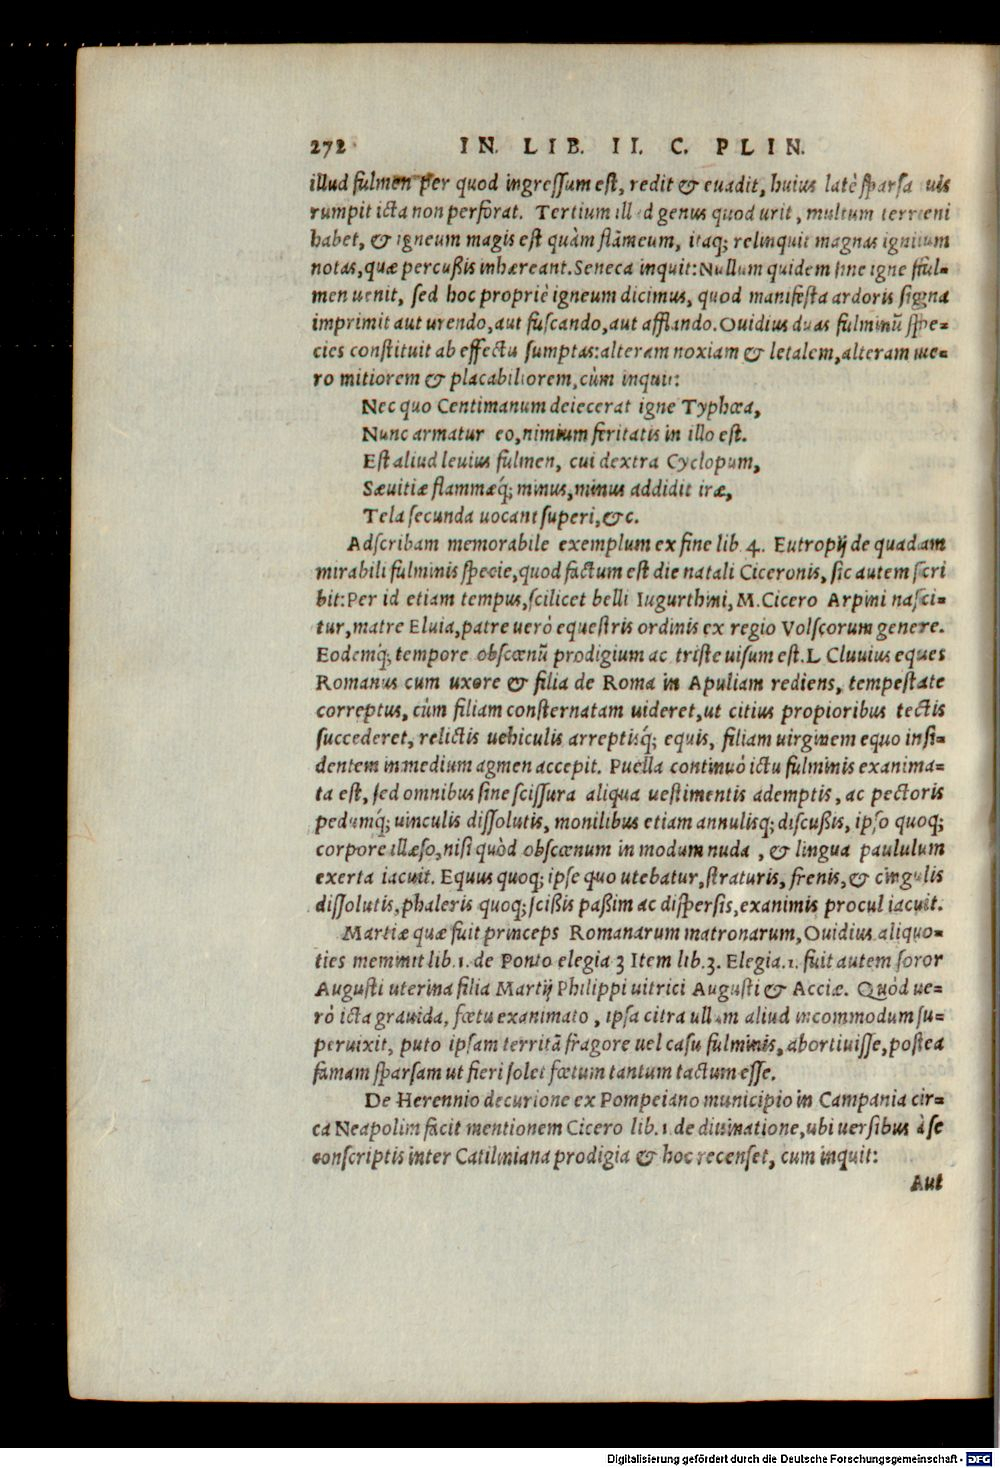 272 IN. LIB. II. C. PLIN.
illud fulmen per quod ingressum est, redit & euadit, huius latè sparsa uis
rumpit icta non perforat. Tertium illud genus quod urit, multum terreni
habet, & igneum magis est quàm flãmeum, itaq; relinquit magnas ignium
notas, quæ percußis inhæreant. Seneca inquit: Nullum quidem sine igne ful=
men uenit, sed hoc propriè igneum dicimus, quod manifesta ardoris signa
imprimit aut urendo, aut fuscando, aut afflando. Ouidius duas fulminũ spe=
cies constituit ab effectu sumptas: alteram noxiam & letalem, alteram ue=
ro mitiorem & placabiliorem, cùm inquit:
Nec quo Centimanum deiecerat igne Typhœa,
Nunc armatur eo, nimium feritatis in illo est.
Est aliud leuius fulmen, cui dextra Cyclopum,
Sæuitiæ flammæq́; minus, minus addidit iræ,
Tela secunda uocant superi, &c.
Adscribam memorabile exemplum ex fine lib. 4. Eutropij de quadam
mirabili fulminis specie, quod factum est die natali Ciceronis, sic autem scri
bit: Per id etiam tempus, scilicet belli Iugurthini, M. Cicero Arpini nasci=
tur, matre Eluia, patre uerò equestris ordinis ex regio Volscorum genere.
Eodemq́; tempore obscœnũ prodigium ac triste uisum est. L Cluuius eques
Romanus cum uxore & filia de Roma in Apuliam rediens, tempestate
correptus, cùm filiam consternatam uideret, ut citius propioribus tectis
succederet, relictis uehiculis arreptisq́; equis, filiam uirginem equo insi=
dentem in medium agmen accepit. Puella continuò ictu fulminis exanima=
ta est, sed omnibus sine scissura aliqua uestimentis ademptis, ac pectoris
pedumq́; uinculis dissolutis, monilibus etiam annulisq; discußis, ipso quoq;
corpore illæso, nisi quòd obscœnum in modum nuda, & lingua paululum
exerta iacuit. Equus quoq; ipse quo utebatur, straturis, frenis, & cingulis
dissolutis, phaleris quoq; scißis paßim ac dispersis, exanimis procul iacuit.
Martiæ quæ fuit princeps Romanarum matronarum, Ouidius aliquo=
ties meminit lib. 1. de Ponto elegia 3 Item lib. 3. Elegia. 1. fuit autem soror
Augusti uterina filia Martij Philippi uitrici Augusti & Acciæ. Quòd ue=
rò icta grauida, fœtu exanimato, ipsa citra ullum aliud incommodum su=
peruixit, puto ipsam territã fragore uel casu fulminis, abortiuisse, postea
famam sparsam ut fieri solet fœtum tantum tactum esse.
De Herennio decurione ex Pompeiano municipio in Campania cir=
ca Neapolim facit mentionem Cicero lib. 1. de diuinatione, ubi uersibus à se
conscriptis inter Catiliniana prodigia & hoc recenset, cum inquit:
Aut
Digitalisierung gefördert durch die Deutsche Forschungsgemeinschaft - DFG